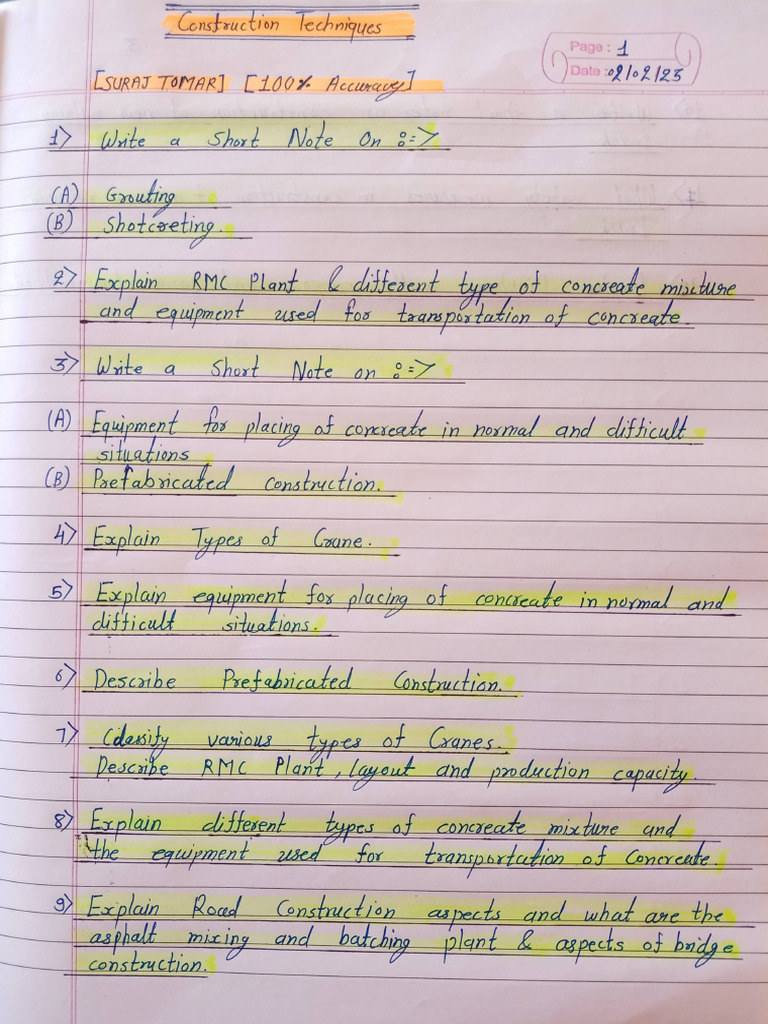 Construction Techniques
Page: 1
Date: 02/02/23
[SURAJ TOMAR] [100% Accuracy]
1> Write a Short Note On :=>
(A) Grouting
(B) Shotcreting.
2> Explain RMC Plant & different type of concreate mixture
and equipment used for transportation of concreate.
3> Write a Short Note on :=>
(A) Equipment for placing of concreate in normal and difficult
situations
(B) Prefabricated construction.
4> Explain Types of Crane.
5> Explain equipment for placing of concreate in normal and
difficult situations.
6> Describe Prefabricated Construction.
7> Classify various types of Cranes.
Describe RMC Plant, layout and production capacity.
8> Explain different types of concreate mixture and
the equipment used for transportation of Concreate.
9> Explain Road Construction aspects and what are the
asphalt mixing and batching plant & aspects of bridge
construction.